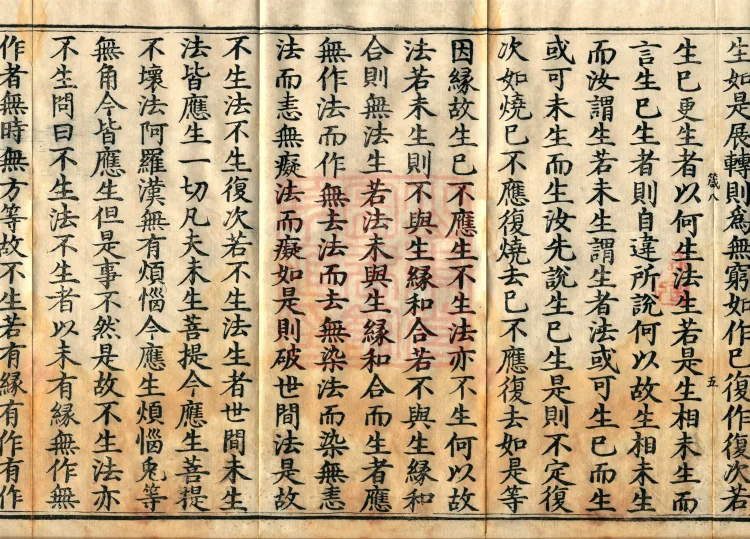 生如是展轉則爲無窮如作巳復作復次若
箴八 五
生巳更生者以何生法生若是生相未生而
言生巳生者則自違所說何以故生相未生
而汝謂生若未生謂生者法或可生巳而生
或可未生而生汝先說生巳生是則不定復
次如燒巳不應復燒去巳不應復去如是等
因緣故生巳不應生不生法亦不生何以故
法若未生則不與生緣和合若不與生緣和
合則無法生若法未與生緣和合而生者應
無作法而作無去法而去無染法而染無恚
法而恚無癡法而癡如是則破世間法是故
不生法不生復次若不生法生者世間未生
法皆應生一切凡夫未生菩提今應生菩提
不壞法阿羅漢無有煩惱今應生煩惱兔等
無角今皆應生但是事不然是故不生法亦
不生問曰不生法不生者以未有緣無作無
作者無時無方等故不生若有緣有作有作